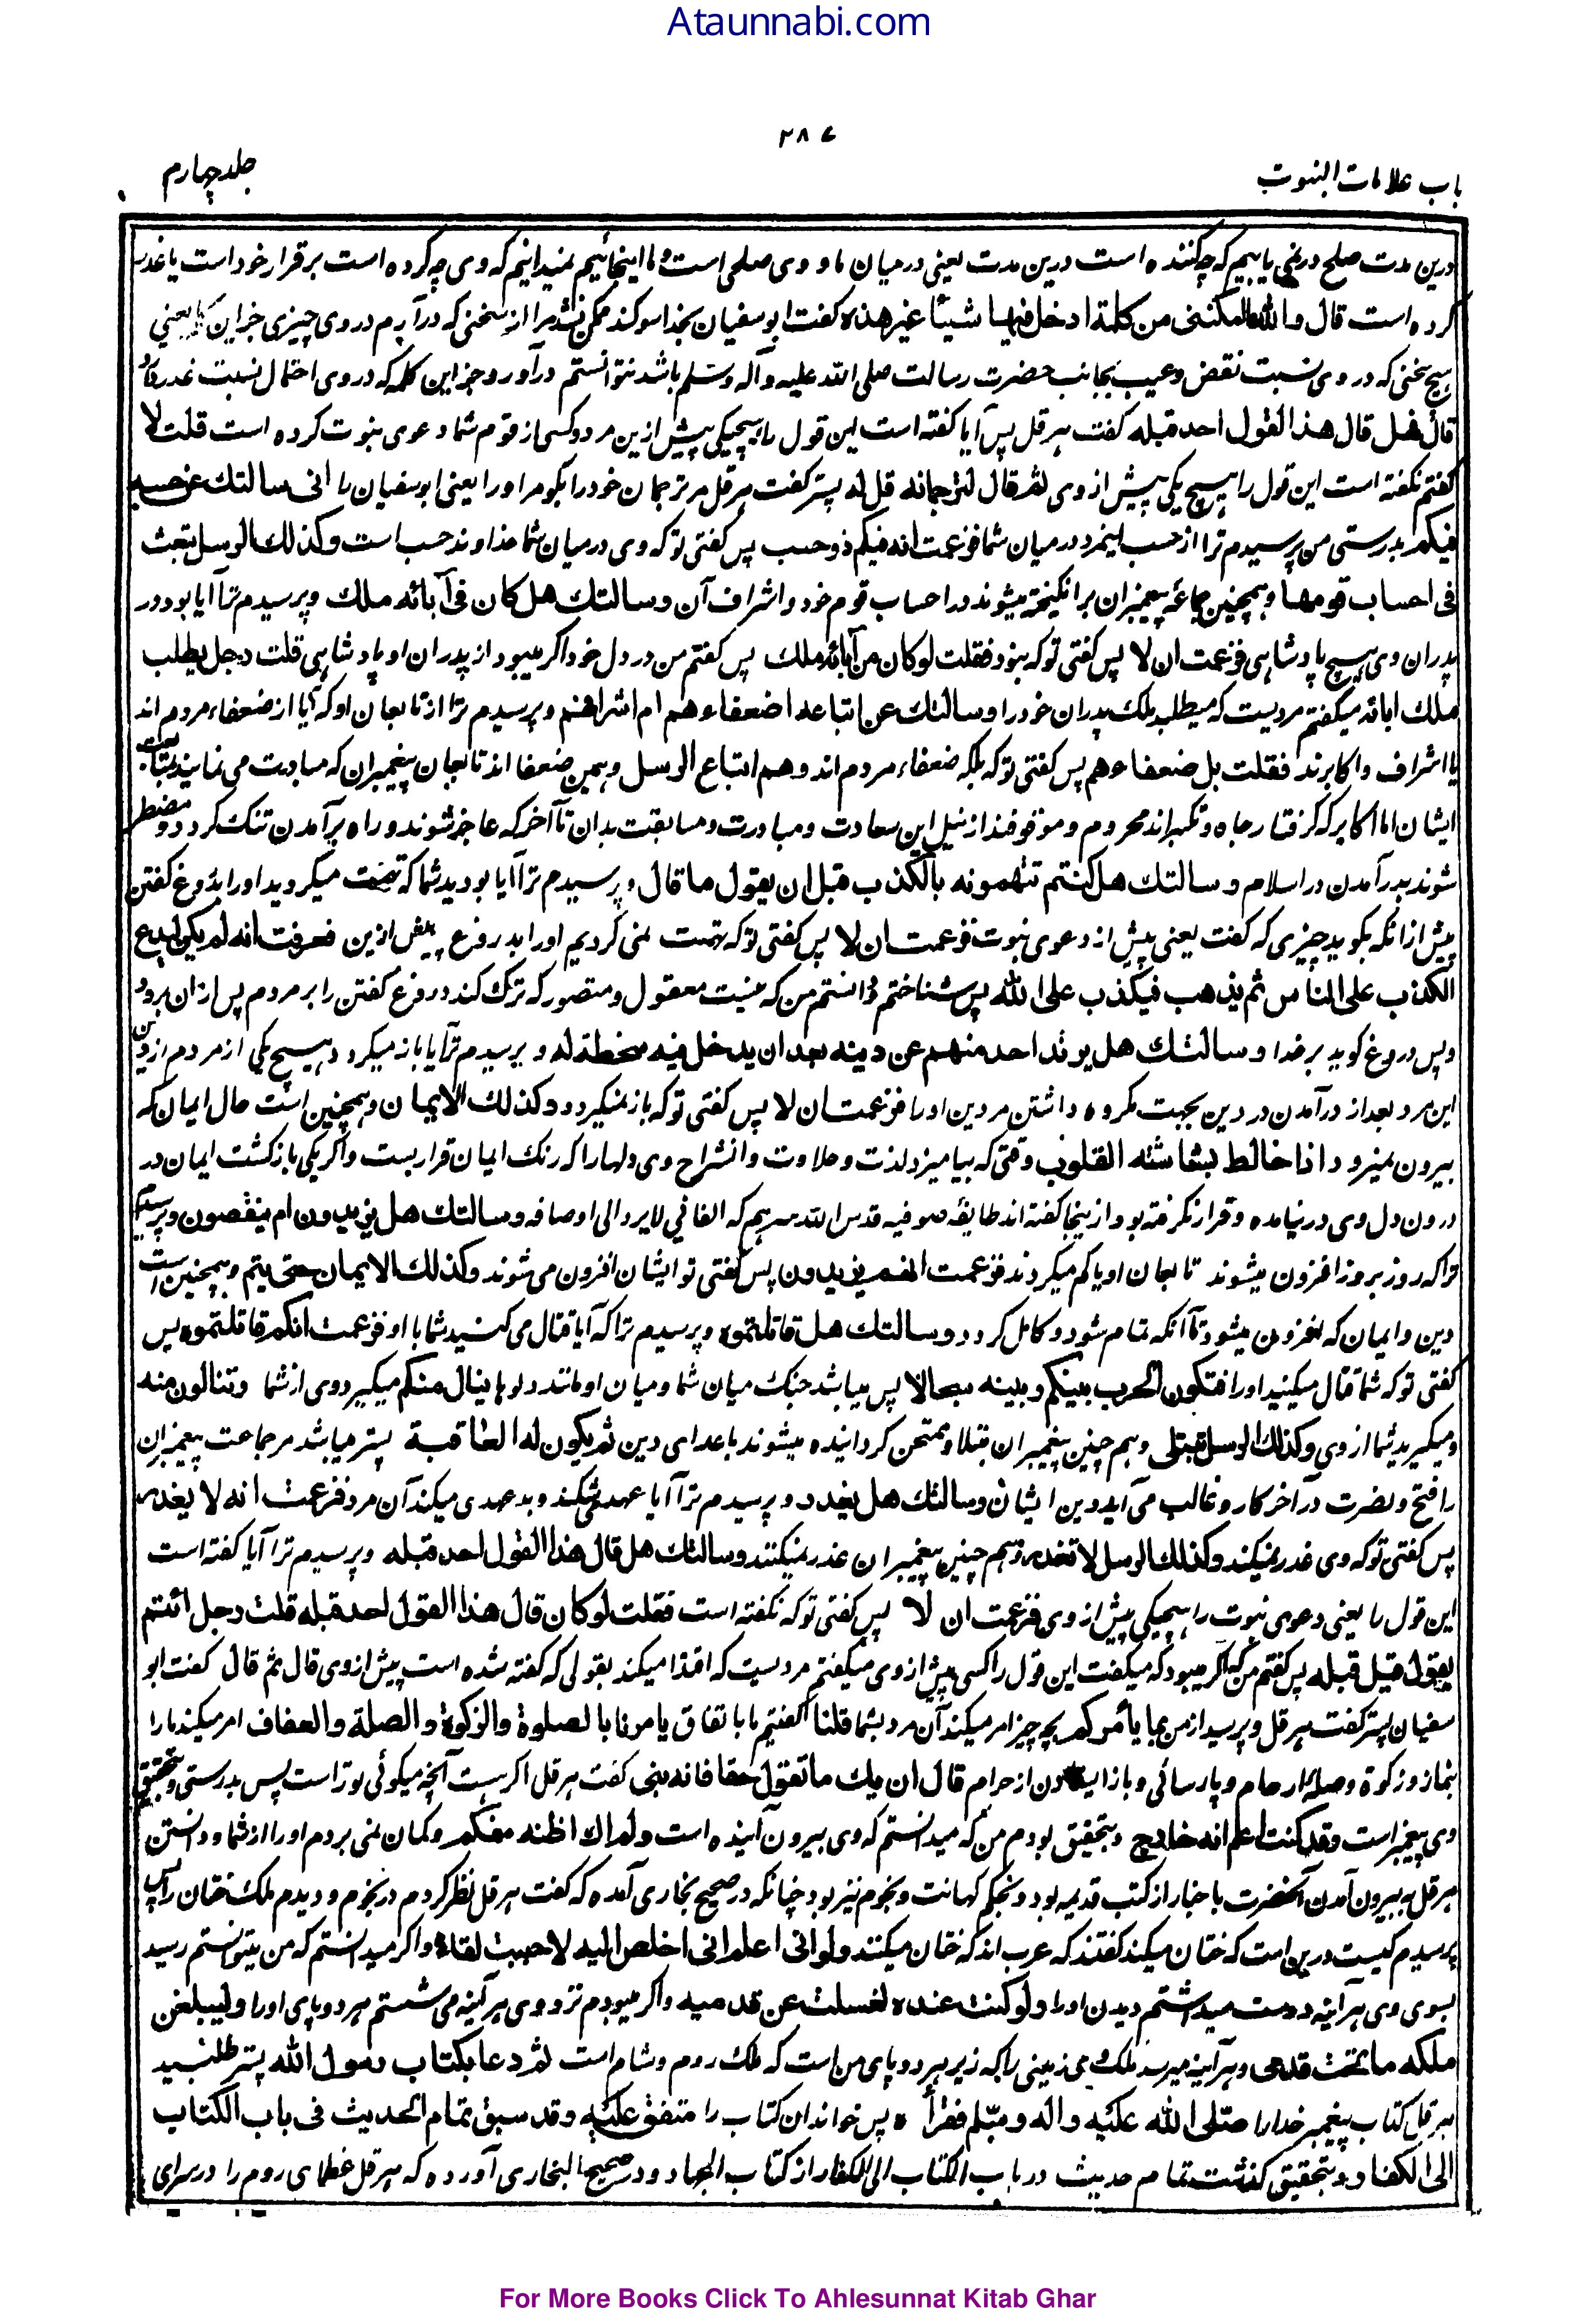 Ataunnabi.com
۲۸۷
باب علامات النبوت
جلد چهارم
درین مدت صلح در نمی یابیم که چه کننده است درین مدت یعنی درمیان ما و وی صلحی است و ما اینجائیم نمیدانیم که وی چه کرده است برقرار خود است یا غدر
کرده است قال والله ما امکننی من کلمة ادخل فیها شیئا غیر هذه گفت ابوسفیان بخدا سوگند ممکن نشد مرا از سخنی که درآرم در وی چیزی جز این یعنی
هیچ سخنی که در وی نسبت نقص و عیب بجانب حضرت رسالت صلی الله علیه وآله وسلم باشد نتوانستم درآورد جز این کلمه که در وی احتمال نسبت غدر
قال فهل قال هذا القول احد قبله گفت هرقل پس آیا گفته است این قول را هیچیکی پیش ازین مرد و کسی از قوم شما دعوی نبوت کرده است قلت لا
گفتم نگفته است این قول را هیچ یکی پیش از وی ثم قال لترجمانه قل له پستر گفت هرقل مر ترجمان خود را بگو مر او را یعنی ابوسفیان را انی سالتك عن حسبه
فیکم بدرستی من پرسیدم ترا از حسب اینمرد درمیان شما فزعمت انه فیکم ذو حسب پس گفتی تو که وی درمیان شما خداوند حسب است وکذلك الرسل تبعث
فی احساب قومها و همچنین جماعه پیغمبران برانگیخته میشوند در احساب قوم خود و اشراف آن وسالتك هل کان فی آبائه ملك و پرسیدم ترا آیا بود در
پدران وی هیچ پادشاهی فزعمت ان لا پس گفتی تو که نبود فقلت لو کان من آبائه ملك پس گفتم من در دل خود اگر میبود از پدران او پادشاهی قلت رجل یطلب
ملك ابائه میگفتم مردیست که میطلبد ملک پدران خود را وسالتك عن اتباعه اضعفاءهم ام اشرافهم و پرسیدم ترا از تابعان او که آیا از ضعفاء مردم اند
یا اشراف و اکابرند فقلت بل ضعفاءهم پس گفتی تو که بلکه ضعفاء مردم اند وهم اتباع الرسل و همین ضعفا اند تابعان پیغمبران که مبادرت می نمایند بمتابعت
ایشان اما اکابر که گرفتار جاه و تکبر اند محروم و موقوفند از نیل این سعادت و مبادرت و مسابقت بدان تا آخر که عاجز شوند و راه برآمدن تنگ گردد و مضطر
شوند بدرآمدن در اسلام وسالتك هل کنتم تتهمونه بالکذب قبل ان یقول ما قال و پرسیدم ترا آیا بودید شما که تهمت میکردید او را بدروغ گفتن
پیش ازانکه بگوید چیزی که گفت یعنی پیش از دعوی نبوت فزعمت ان لا پس گفتی تو که تهمت نمی کردیم او را بدروغ پیش ازین فعرفت انه لم یکن لیدع
الکذب علی الناس ثم یذهب فیکذب علی الله پس شناختم و دانستم من که نیست معقول و متصور که ترک کند دروغ گفتن را بر مردم پس ازان برود
و پس دروغ گوید بر خدا وسالتك هل یرتد احد منهم عن دینه بعد ان یدخل فیه سخطة له و پرسیدم ترا آیا باز میگردد هیچ یکی از مردم از دین
این مرد بعد از درآمدن در دین بجهت مکروه داشتن مر دین او را فزعمت ان لا پس گفتی تو که باز نمیگردد وکذلك الایمان و همچنین است حال ایمان که
بیرون نمیرود اذا خالط بشاشته القلوب وقتی که بیامیزد لذت و حلاوت و انشراح وی دلها را که رنگ ایمان قرار بست و اگر یکی بازگشت ایمان در
درون دل وی در نیامده و قرار نگرفته بود و ازینجا گفته اند طایفه صوفیه قدس الله سرهم که الفانی لا یرد الی اوصافه وسالتك هل یزیدون ام ینقصون و پرسیدم
ترا که روز بروز افزون میشوند تابعان او یا کم میگردند فزعمت انهم یزیدون پس گفتی تو ایشان افزون می شوند وکذلك الایمان حتی یتم و همچنین است
دین و ایمان که افزون میشود تا آنکه تمام شود و کامل گردد وسالتك هل قاتلتموه و پرسیدم ترا که آیا قتال می کنید شما با او فزعمت انکم قاتلتموه پس
گفتی تو که شما قتال میکنید او را فتکون الحرب بینکم وبینه سجالا پس میباشد جنگ میان شما و میان او مانند دلوها ینال منکم میگیرد وی از شما وتنالون منه
و میگیرید شما از وی وکذلك الرسل تبتلی و هم چنین پیغمبران مبتلا و ممتحن گردانیده میشوند باعدای دین ثم یکون لها العاقبة پستر میباشد مر جماعت پیغمبران
را فتح و نصرت در آخر کار و غالب می آید دین ایشان وسالتك هل یغدر و پرسیدم ترا آیا عهد میشکند و بدعهدی میکند آن مرد فزعمت انه لا یغدر
پس گفتی تو که وی غدر نمیکند وکذلك الرسل لا تغدر و هم چنین پیغمبران غدر نمیکنند وسالتك هل قال هذا القول احد قبله و پرسیدم ترا آیا گفته است
این قول را یعنی دعوی نبوت را هیچیکی پیش از وی فزعمت ان لا پس گفتی تو که نگفته است فقلت لو کان قال هذا القول احد قبله قلت رجل ائتم
بقول قیل قبله پس گفتم من که اگر میبود که میگفت این قول را کسی پیش از وی میگفتم مردیست که اقتدا میکند بقولی که گفته شده است پیش از وی قال ثم قال گفت ابو
سفیان پستر گفت هرقل و پرسید از من بما یأمرکم بچه چیز امر میکند آن مرد بشما قلنا گفتیم ما باتفاق یامرنا بالصلوة والزکوة والصلة والعفاف امر میکند ما را
بنماز و زکوة و صلهٔ ارحام و پارسائی و باز ایستادن از حرام قال ان یك ما تقول حقا فانه نبی گفت هرقل اگر هست آنچه میگوئی تو راست پس بدرستی و تحقیق
وی پیغمبر است وقد کنت اعلم انه خارج و بتحقیق بودم من که میدانستم که وی بیرون آینده است ولم اك اظنه منکم و گمان نمی بردم او را از شما و دانستن
هرقل به بیرون آمدن آنحضرت باخبار از کتب قدیمه بود و بحکم کهانت و نجوم نیز بود چنانکه در صحیح بخاری آمده که گفت هرقل نظر کردم در نجوم و دیدم ملک ختان را پس
پرسیدم کیست درین امت که ختان میکند گفتند که عرب اند که ختان میکنند ولو انی اعلم انی اخلص الیه لاحببت لقاءه و اگر میدانستم که من میتوانستم رسید
بسوی وی هر آینه دوست میداشتم دیدن او را ولو کنت عنده لغسلت عن قدمیه و اگر میبودم نزد وی هر آینه می شستم هر دو پای او را ولیبلغن
ملکه ما تحت قدمی و هر آینه میرسد ملک وی زمینی را که زیر هر دو پای من است که ملک روم و شام است ثم دعا بکتاب رسول الله پستر طلبید
هرقل کتاب پیغمبر خدا را صلی الله علیه واله وسلم فقرأه پس خواند آن کتاب را متفق علیه وقد سبق تمام الحدیث فی باب الکتاب
الی الکفار و بتحقیق گذشت تمام حدیث در باب الکتاب الی الکفار از کتاب الجهاد و در صحیح البخاری آورده که هرقل عظمای روم را در سرای
For More Books Click To Ahlesunnat Kitab Ghar